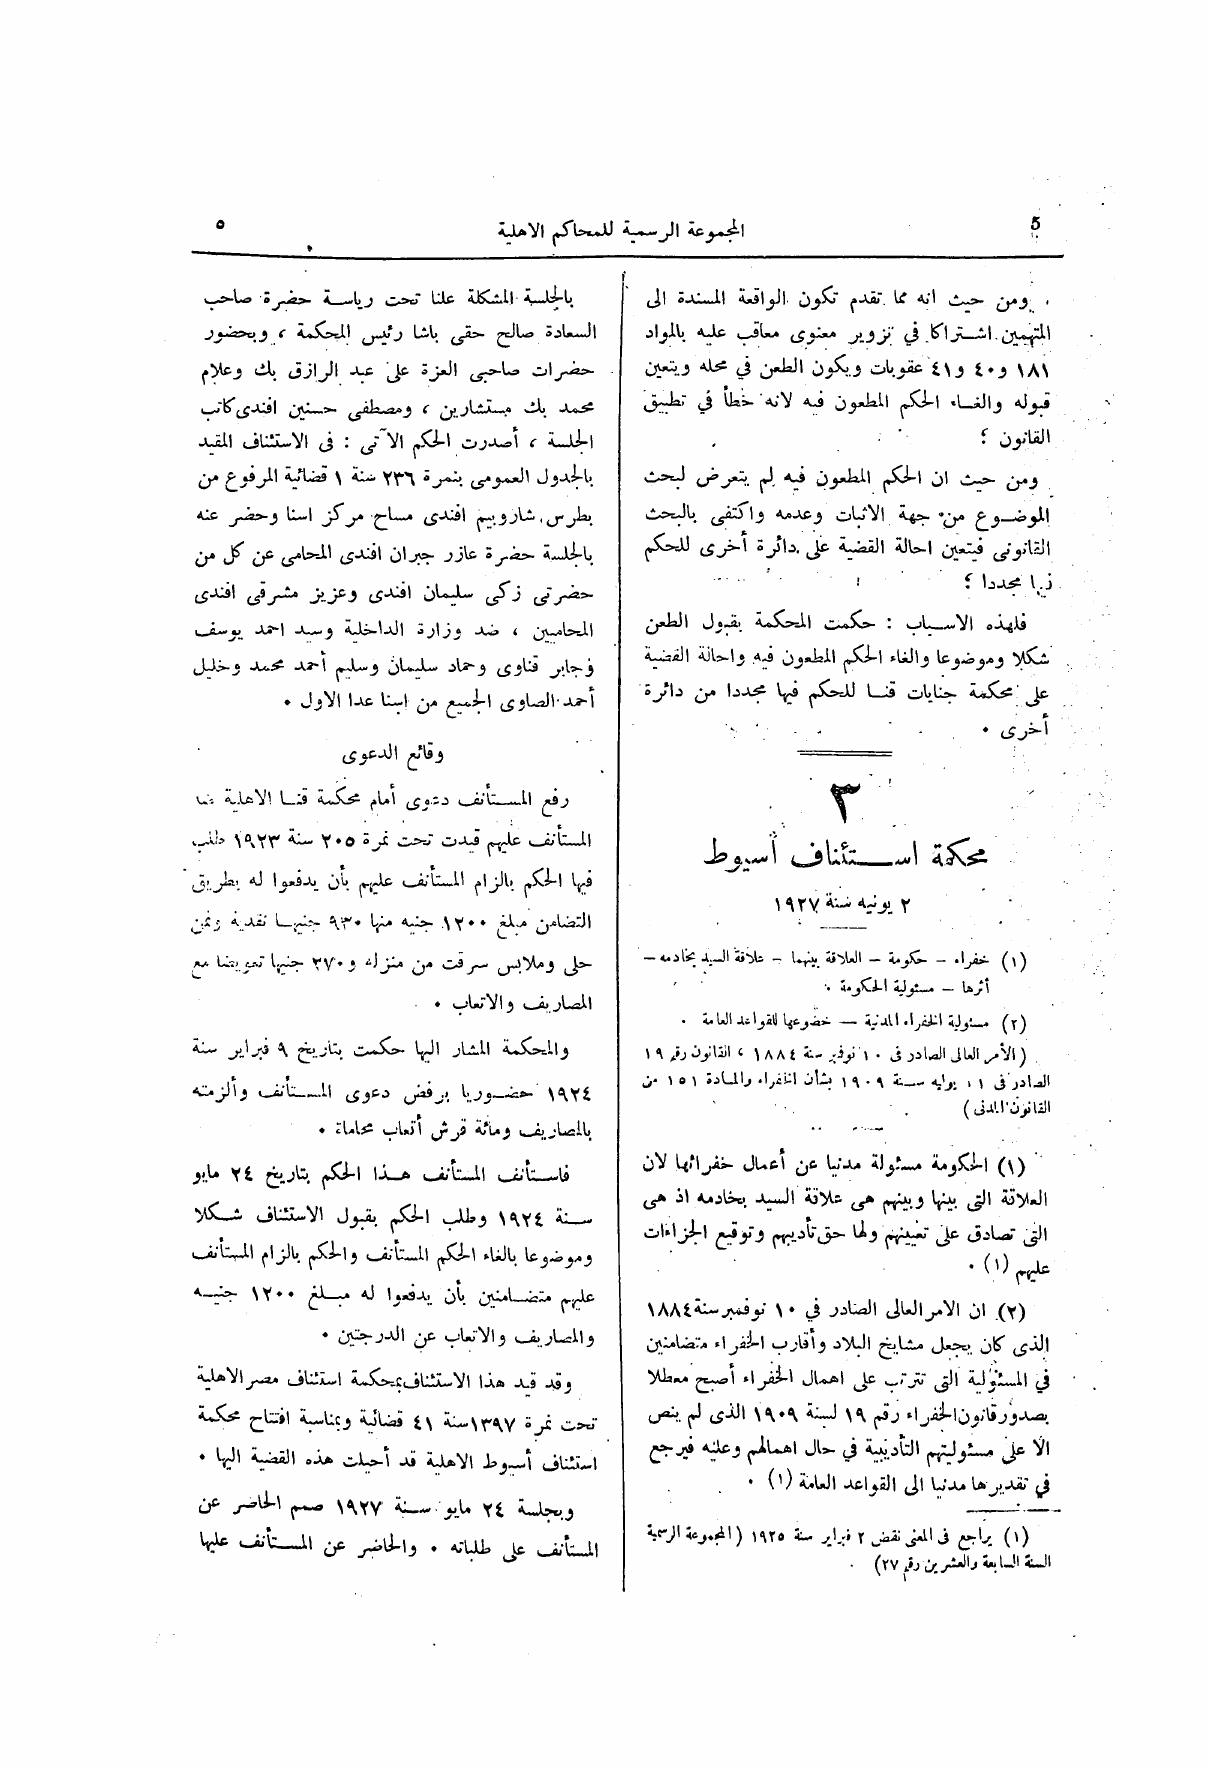 5
المجموعة الرسمية للمحاكم الاهلية
٥
ومن حيث انه مما تقدم تكون الواقعة المسندة الى
المتهمين اشتراكا في تزوير معنوى معاقب عليه بالمواد
١٨١ و٤٠ و٤١ عقوبات ويكون الطعن في محله ويتعين
قبوله والغاء الحكم المطعون فيه لانه خطأ في تطبيق
القانون ؛
ومن حيث ان الحكم المطعون فيه لم يتعرض لبحث
الموضوع من جهة الاثبات وعدمه واكتفى بالبحث
القانونى فيتعين احالة القضية على دائرة أخرى للحكم
فيها مجددا ؛
فلهذه الاسباب : حكمت المحكمة بقبول الطعن
شكلا وموضوعا والغاء الحكم المطعون فيه واحالة القضية
على محكمة جنايات قنا للحكم فيها مجددا من دائرة
أخرى .
٣
محكمة استئناف أسيوط
٢ يونيه سنة ١٩٢٧
(١) خفراء – حكومة – العلاقة بينهما – علاقة السيد بخادمه –
أثرها – مسئولية الحكومة .
(٢) مسئولية الخفراء المدنية – خضوعها للقواعد العامة .
(الأمر العالى الصادر فى ١٠ نوفمبر سنة ١٨٨٤ ، القانون رقم ١٩
الصادر فى ١١ يوليه سنة ١٩٠٩ بشأن الخفراء والمادة ١٥١ من
القانون المدنى)
(١) الحكومة مسئولة مدنيا عن أعمال خفرائها لان
العلاقة التى بينها وبينهم هى علاقة السيد بخادمه اذ هى
التى تصادق على تعيينهم ولها حق تأديبهم وتوقيع الجزاءات
عليهم (١) .
(٢) ان الامر العالى الصادر في ١٠ نوفمبر سنة ١٨٨٤
الذى كان يجعل مشايخ البلاد وأقارب الخفراء متضامنين
في المسئولية التى تترتب على اهمال الخفراء أصبح معطلا
بصدور قانون الخفراء رقم ١٩ لسنة ١٩٠٩ الذى لم ينص
الا على مسئوليتهم التأديبية في حال اهمالهم وعليه فيرجع
في تقديرها مدنيا الى القواعد العامة (١) .
(١) يراجع فى المعنى نقض ٢ فبراير سنة ١٩٢٥ (المجموعة الرسمية
السنة السابعة والعشرين رقم ٢٧) .
بالجلسة المشكلة علنا تحت رياسة حضرة صاحب
السعادة صالح حقى باشا رئيس المحكمة ، وبحضور
حضرات صاحبى العزة على عبد الرازق بك وعلام
محمد بك مستشارين ، ومصطفى حسنين افندى كاتب
الجلسة ، أصدرت الحكم الآتى : فى الاستئناف المقيد
بالجدول العمومى بنمرة ٢٣٦ سنة ١ قضائية المرفوع من
بطرس شاروبيم افندى مساح مركز اسنا وحضر عنه
بالجلسة حضرة عازر جبران افندى المحامى عن كل من
حضرتى زكى سليمان افندى وعزيز مشرقى افندى
المحاميين ، ضد وزارة الداخلية وسيد احمد يوسف
وجابر قناوى وحماد سليمان وسليم أحمد محمد وخليل
أحمد الصاوى الجميع من اسنا عدا الاول .
وقائع الدعوى
رفع المستأنف دعوى أمام محكمة قنا الاهلية ضد
المستأنف عليهم قيدت تحت نمرة ٢٠٥ سنة ١٩٢٣ طلب
فيها الحكم بالزام المستأنف عليهم بأن يدفعوا له بطريق
التضامن مبلغ ١٢٠٠ جنيه منها ٩٣٠ جنيها نقدية وثمن
حلى وملابس سرقت من منزله و٢٧٠ جنيها تعويضا مع
المصاريف والاتعاب .
والمحكمة المشار اليها حكمت بتاريخ ٩ فبراير سنة
١٩٢٤ حضوريا برفض دعوى المستأنف وألزمته
بالمصاريف ومائة قرش أتعاب محاماة .
فاستأنف المستأنف هذا الحكم بتاريخ ٢٤ مايو
سنة ١٩٢٤ وطلب الحكم بقبول الاستئناف شكلا
وموضوعا بالغاء الحكم المستأنف والحكم بالزام المستأنف
عليهم متضامنين بأن يدفعوا له مبلغ ١٢٠٠ جنيه
والمصاريف والاتعاب عن الدرجتين .
وقد قيد هذا الاستئناف بمحكمة استئناف مصر الاهلية
تحت نمرة ١٣٩٧ سنة ٤١ قضائية وبمناسبة افتتاح محكمة
استئناف أسيوط الاهلية قد أحيلت هذه القضية اليها .
وبجلسة ٢٤ مايو سنة ١٩٢٧ صمم الحاضر عن
المستأنف على طلباته . والحاضر عن المستأنف عليها